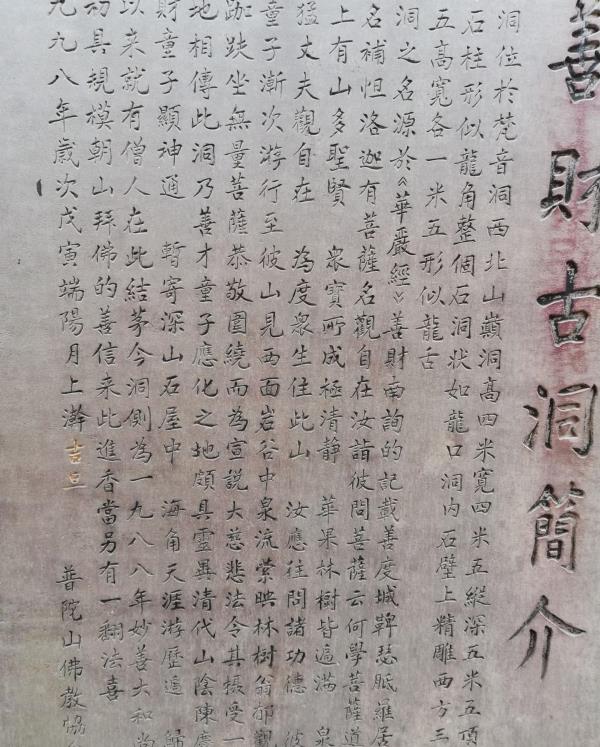 善財古洞簡介
洞位於梵音洞西北山巔洞高四米寬四米五縱深五米五頂
石柱形似龍角整個石洞狀如龍口洞內石壁上精雕西方三
五高寬各一米五形似龍舌
洞之名源於《華嚴經》善財南詢的記載善度城鞞瑟胝羅居
名補怛洛迦有菩薩名觀自在汝詣彼問菩薩云何學菩薩道
上有山多聖賢 眾寶所成極清靜 華果林樹皆遍滿 泉
猛丈夫觀自在 為度眾生住此山 汝應往問諸功德 彼
童子漸次游行至彼山見西面岩谷中泉流縈映林樹蓊郁觀
跏趺坐無量菩薩恭敬圍繞而為宣說大慈悲法令其攝受一
地相傳此洞乃善才童子應化之地頗具靈異清代山陰陳慶
財童子顯神通 暫寄深山石屋中 海角天涯游歷遍 歸
以來就有僧人在此結茅今洞側為一九八八年妙善大和尚
初具規模朝山拜佛的善信來此進香當另有一翻法喜
九九八年歲次戊寅端陽月上澣吉旦 普陀山佛教協